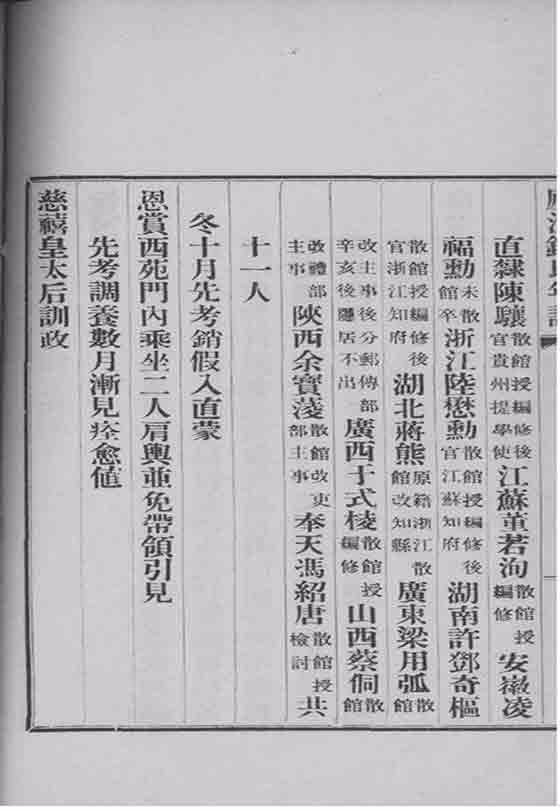 直隸陳驤散館授編修後官貴州提學使江蘇董若洵散館授編修安徽凌
福勳未散館卒浙江陸懋勳散館授編修後官江蘇知府湖南許鄧奇樞
散館授編修後官浙江知府湖北蔣熊原籍浙江散館改知縣廣東梁用弧散館
改主事後分郵傳部辛亥後隱居不出廣西于式棱散館授編修山西蔡侗散館
改禮部主事陝西余寶蔆散館改吏部主事奉天馮紹唐散館授檢討共
十一人
冬十月先考銷假入直蒙
恩賞西苑門內乘坐二人肩輿並免帶領引見
先考調養數月漸見痊愈値
慈禧皇太后訓政